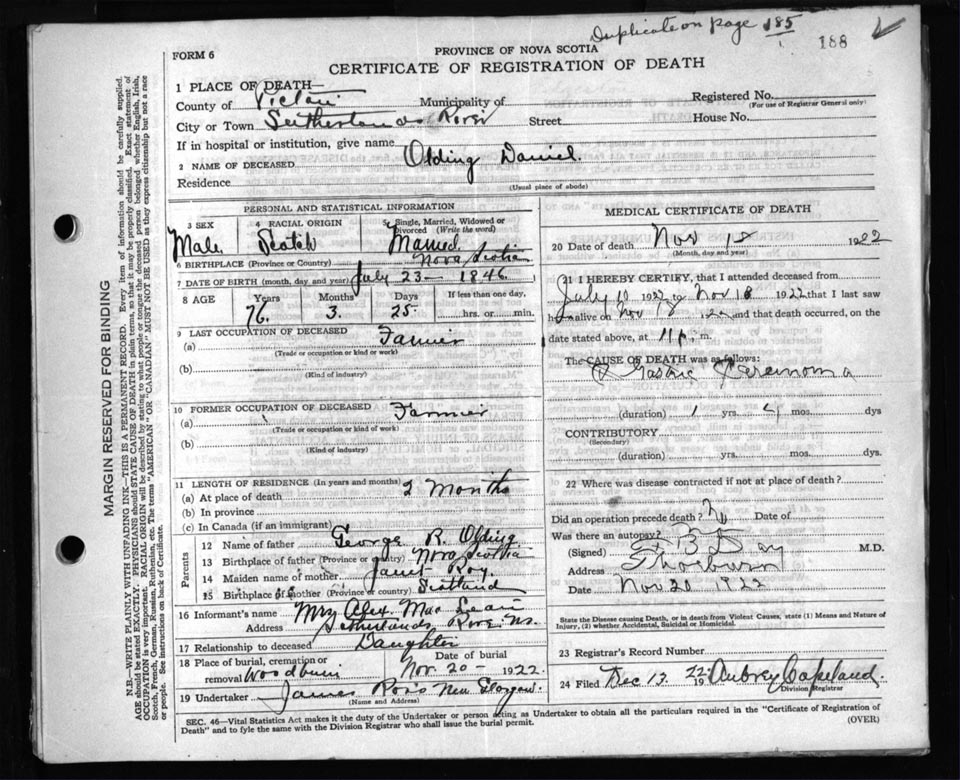 Duplicate on page 185
188
FORM 6
PROVINCE OF NOVA SCOTIA
CERTIFICATE OF REGISTRATION OF DEATH
1 PLACE OF DEATH—
County of Pictou Municipality of
Registered No.
(For use of Registrar General only)
City or Town Sutherlands River Street House No.
If in hospital or institution, give name
2 NAME OF DECEASED Olding Daniel.
Residence
(Usual place of abode)
PERSONAL AND STATISTICAL INFORMATION
3 SEX 4 RACIAL ORIGIN 5 Single, Married, Widowed or Divorced (Write the word)
Male Scotch Married
6 BIRTHPLACE (Province or Country) Nova Scotia
7 DATE OF BIRTH (month, day and year) July 23 — 1846
8 AGE Years Months Days If less than one day,
76. 3. 25. hrs. or min.
9 LAST OCCUPATION OF DECEASED
(a) Farmer
(Trade or occupation or kind or work)
(b)
(Kind of industry)
10 FORMER OCCUPATION OF DECEASED
(a) Farmer
(Trade or occupation or kind of work)
(b)
(Kind of industry)
11 LENGTH OF RESIDENCE (In years and months)
(a) At place of death 2 Months
(b) In province
(c) In Canada (if an immigrant)
Parents
12 Name of father George R. Olding
13 Birthplace of father (Province or country) Nova Scotia
14 Maiden name of mother Janet Roy.
15 Birthplace of mother (Province or country) Scotland
16 Informant's name Mrs Alex. MacLean
Address Sutherlands River NS.
17 Relationship to deceased Daughter
18 Place of burial, cremation or removal Woodburn Date of burial Nov. 20 — 1922.
19 Undertaker James Ross New Glasgow.
(Name and Address)
MEDICAL CERTIFICATE OF DEATH
20 Date of death Nov 18 1922
(Month, day and year)
21 I HEREBY CERTIFY, that I attended deceased from
July 10 1922 to Nov 18 1922 that I last saw
h alive on Nov 18 1922 and that death occurred, on the
date stated above, at 11 p. m.
The CAUSE OF DEATH was as follows:
Gastric Carcinoma
(duration) 1 yrs. 4 mos. dys
CONTRIBUTORY
(Secondary)
(duration) yrs. mos. dys.
22 Where was disease contracted if not at place of death?
Did an operation precede death? No Date of
Was there an autopsy?
(Signed) B Day M.D.
Address Thorburn
Date Nov 20 1922
State the Disease causing Death, or in death from Violent Causes, state (1) Means and Nature of
Injury, (2) whether Accidental, Suicidal or Homicidal.
23 Registrar's Record Number
24 Filed Dec 13. 1922. Aubrey Copeland.
Division Registrar
SEC. 46—Vital Statistics Act makes it the duty of the Undertaker or person acting as Undertaker to obtain all the particulars required in the "Certificate of Registration of
Death" and to fyle the same with the Division Registrar who shall issue the burial permit.
(OVER)
MARGIN RESERVED FOR BINDING
N.B.—WRITE PLAINLY WITH UNFADING INK—THIS IS A PERMANENT RECORD. Every item of information should be carefully supplied.
AGE should be stated EXACTLY. PHYSICIANS should STATE CAUSE OF DEATH in plain terms, so that it may be properly classified. Exact statement of
OCCUPATION is very important. RACIAL ORIGIN will be described by stating to what people or tongue the deceased person belonged whether English, Irish,
Scotch, French, German, Russian, Ruthenian, etc. The terms "AMERICAN" OR "CANADIAN" MUST NOT BE USED as they express citizenship but not a race
or people. See instructions on back of Certificate.